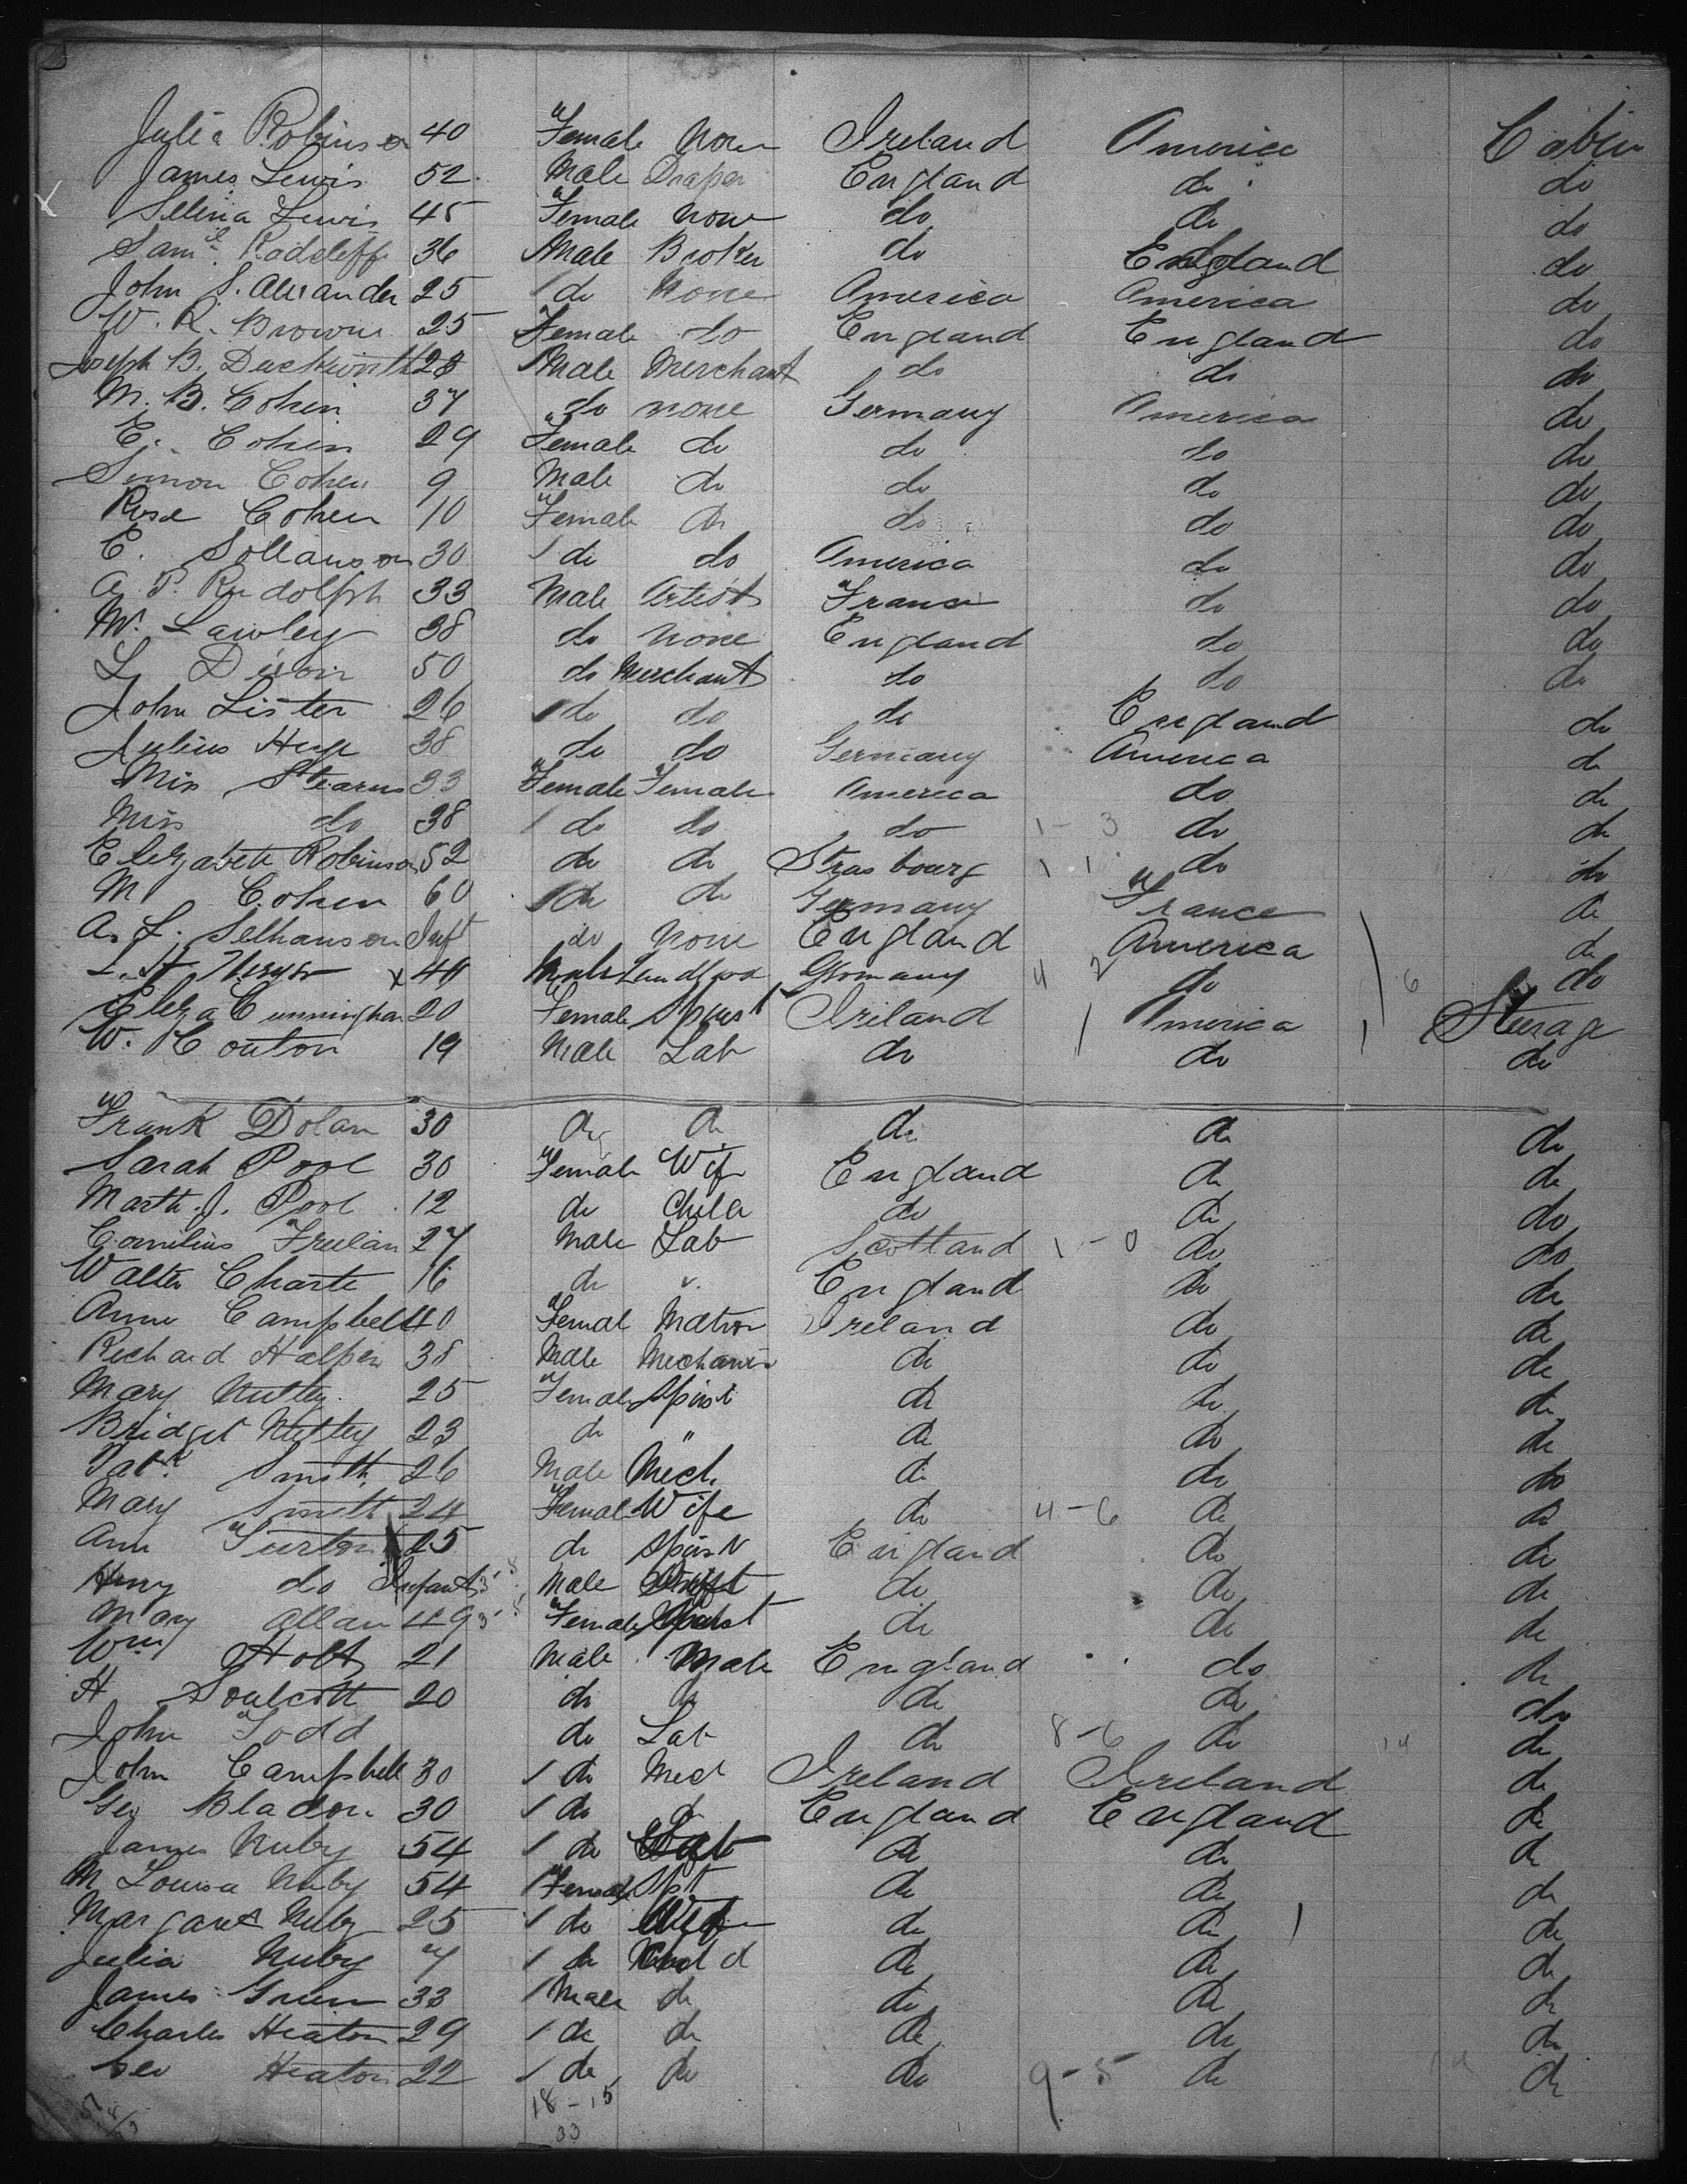 Julia Robinson 40 Female None Ireland America Cabin
James Lewis 52 Male Draper England do do
Sellina Lewis 45 Female None do do do
Saml Radcleffe 36 Male Broker do England do
John S. Alexander 25 do None America America do
W. R. Browne 25 Female do England England do
Joseph B. Duckworth 28 Male Merchant do do do
M. B. Cohen 37 do none Germany America do
E. Cohen 29 Female do do do do
Simon Cohen 9 Male do do do do
Rose Cohen 10 Female do do do do
E. 30 do do America do do
A. P. Rudolph 33 Male Artist France do do
W. Lawley 38 do None England do do
L. 50 do Merchant do do do
John Lister 26 do do do England do
Julius 38 do do Germany America do
Miss Stearns 33 Female Female America do do
Miss do 38 do do do 1-3 do do
Elizabeth Robinson 52 do do Strasbourg 1 1 do do
M Cohen 60 do do Germany France do
A. L. Inft do None England America do
L. H. x Male Germany 4 2 do 6 do
Eliza Cunningham 20 Female Spinst Ireland America Steerage
W. Couton 19 Male Lab do do do
Frank Dolan 30 do do do do do
Sarah Pool 30 Female Wife England do do
Marth. J. Pool 12 do Child do do do
Cornilius 27 Male Lab Scotland 1-0 do do
Walter Charte 16 do " England do do
Anne Campbell 40 Femal Matron Ireland do do
Richard Halpin 38 Male Mechanic do do do
Mary Nutley 25 Female Spinst do do do
Bridget Nutley 23 do " do do do
Patk Smith 26 Male Mech. do do do
Mary Smith 24 Femal Wife do 4-6 do do
Ann Turton 25 do Spinst England do do
do Infant Male do do do
Mary Allan 49 Female Spinst do do do
Wm Holt 21 Male Male England do do
H Soulcott 20 do do do do do
John Todd do Lab do 8-6 do 14 do
John Campbell 30 do Mech Ireland Ireland do
Geo Bladon 30 do do England England do
James Nuby 54 do Lab do do do
M Louisa Nuby 54 Female Spt do do do
Margaret Nuby 25 do do do do
Julia Nuby 7 do Child do do do
James Green 33 Male do do do do
Charles Heaton 29 do do do do do
Geo Heaton 22 do do do 9-5 do do
18-15
33